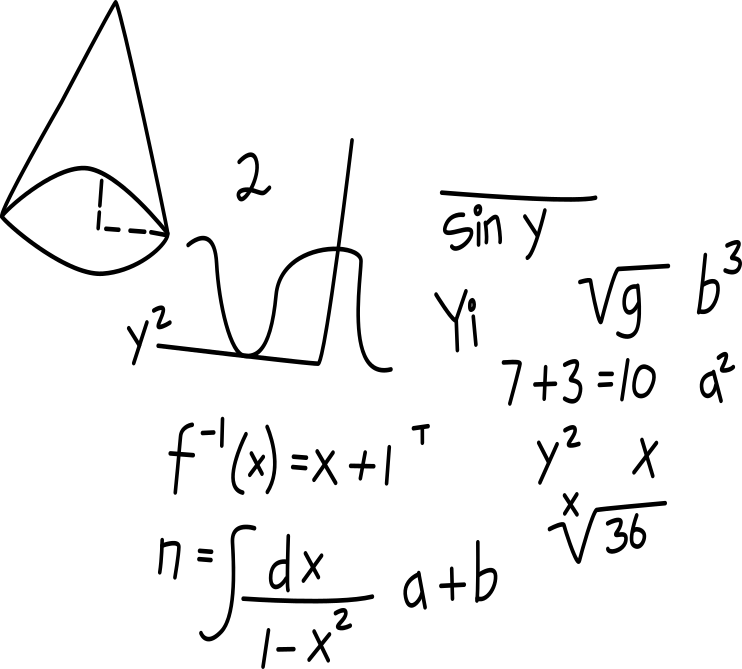 2
sin y
√g b³
Yi
y²
7+3=10 a²
f⁻¹(x)=x+1ᵀ
y² x
ˣ√36
n=∫dx/1-x² a+b